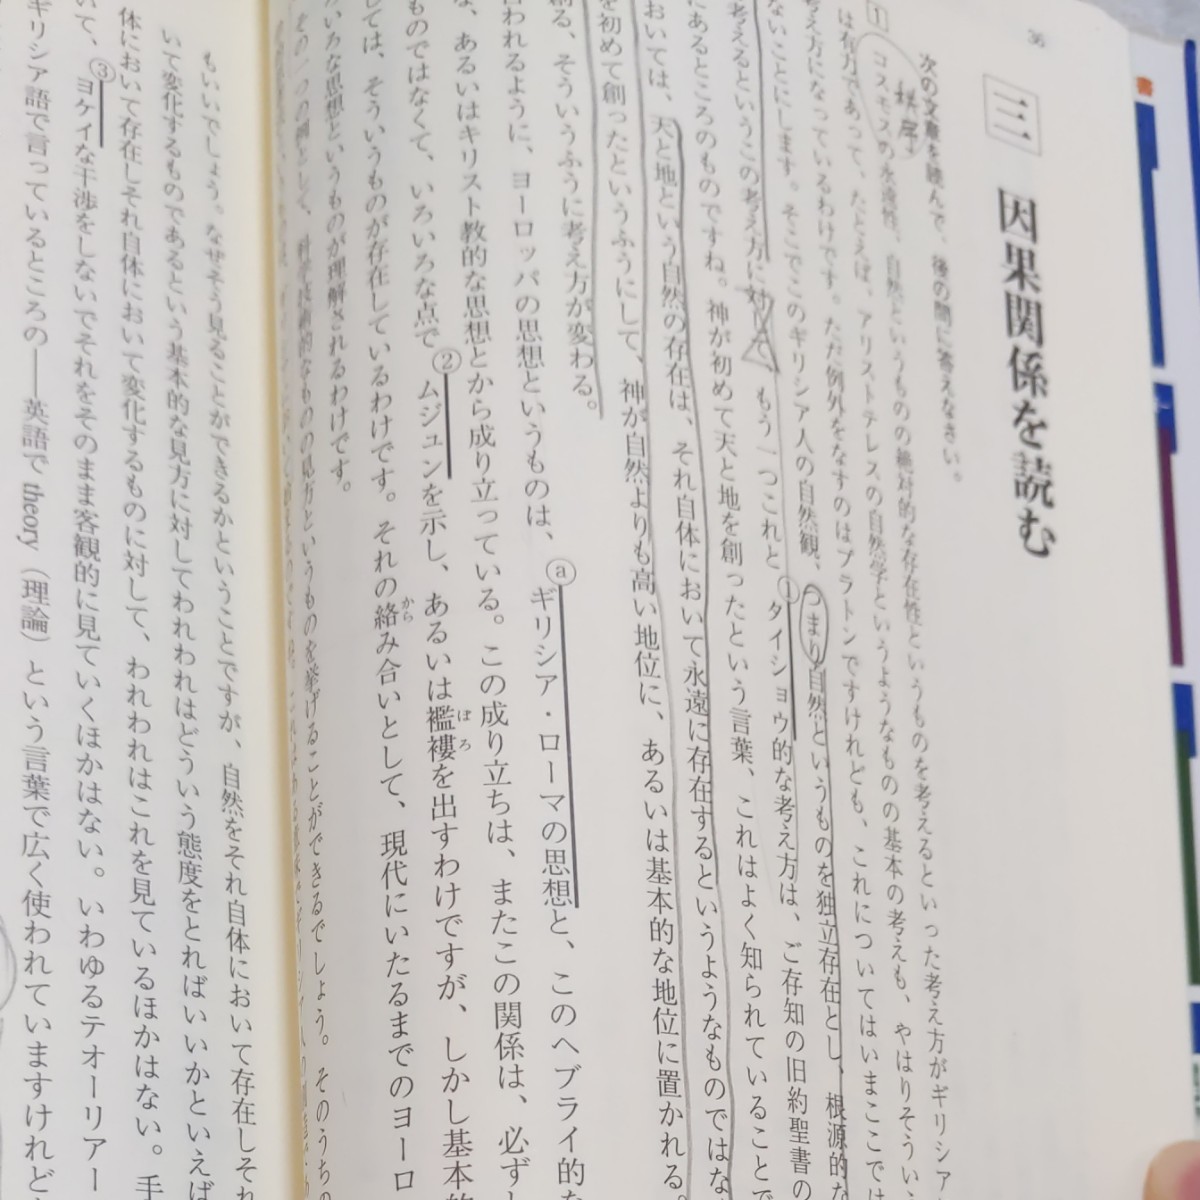 36
三 因果関係を読む
次の文章を読んで、後の問に答えなさい。
秩序
1 コスモスの永遠性、自然というものの絶対的な存在性というものを考えるといった考え方がギリシア
は有力であって、たとえば、アリストテレスの自然学というようなものの基本の考えも、やはりそうい
考え方になっているわけです。ただ例外をなすのはプラトンですけれども、これについてはいまここでは
ないことにします。そこでこのギリシア人の自然観、つまり自然というものを独立存在とし、根源的な
考えるというこの考え方に対して、もう一つこれと①タイショウ的な考え方は、ご存知の旧約聖書の
にあるところのものですね。神が初めて天と地を創ったという言葉、これはよく知られていることで
おいては、天と地という自然の存在は、それ自体において永遠に存在するというようなものではな
を初めて創ったというふうにして、神が自然よりも高い地位に、あるいは基本的な地位に置かれる。
創る、そういうふうに考え方が変わる。
言われるように、ヨーロッパの思想というものは、ⓐギリシア・ローマの思想と、このヘブライ的な
な、あるいはキリスト教的な思想とから成り立っている。この成り立ちは、またこの関係は、必ずし
ものではなくて、いろいろな点で②ムジュンを示し、あるいは襤褸を出すわけですが、しかし基本的
ぼろ
しては、そういうものが存在しているわけです。それの絡み合いとして、現代にいたるまでのヨーロ
から
いろいろな思想というものが理解されるわけです。
その一つの例として、科学技術的なものの見方というものを挙げることができるでしょう。そのうちの
もいいでしょう。なぜそう見ることができるかということですが、自然をそれ自体において存在しそれ
いて変化するものであるという基本的な見方に対してわれわれはどういう態度をとればいいかといえば
体において存在しそれ自体において変化するものに対して、われわれはこれを見ているほかはない。手
いて、③ヨケイな干渉をしないでそれをそのまま客観的に見ていくほかはない。いわゆるテオーリアー
ギリシア語で言っているところの――英語で theory（理論）という言葉で広く使われていますけれど